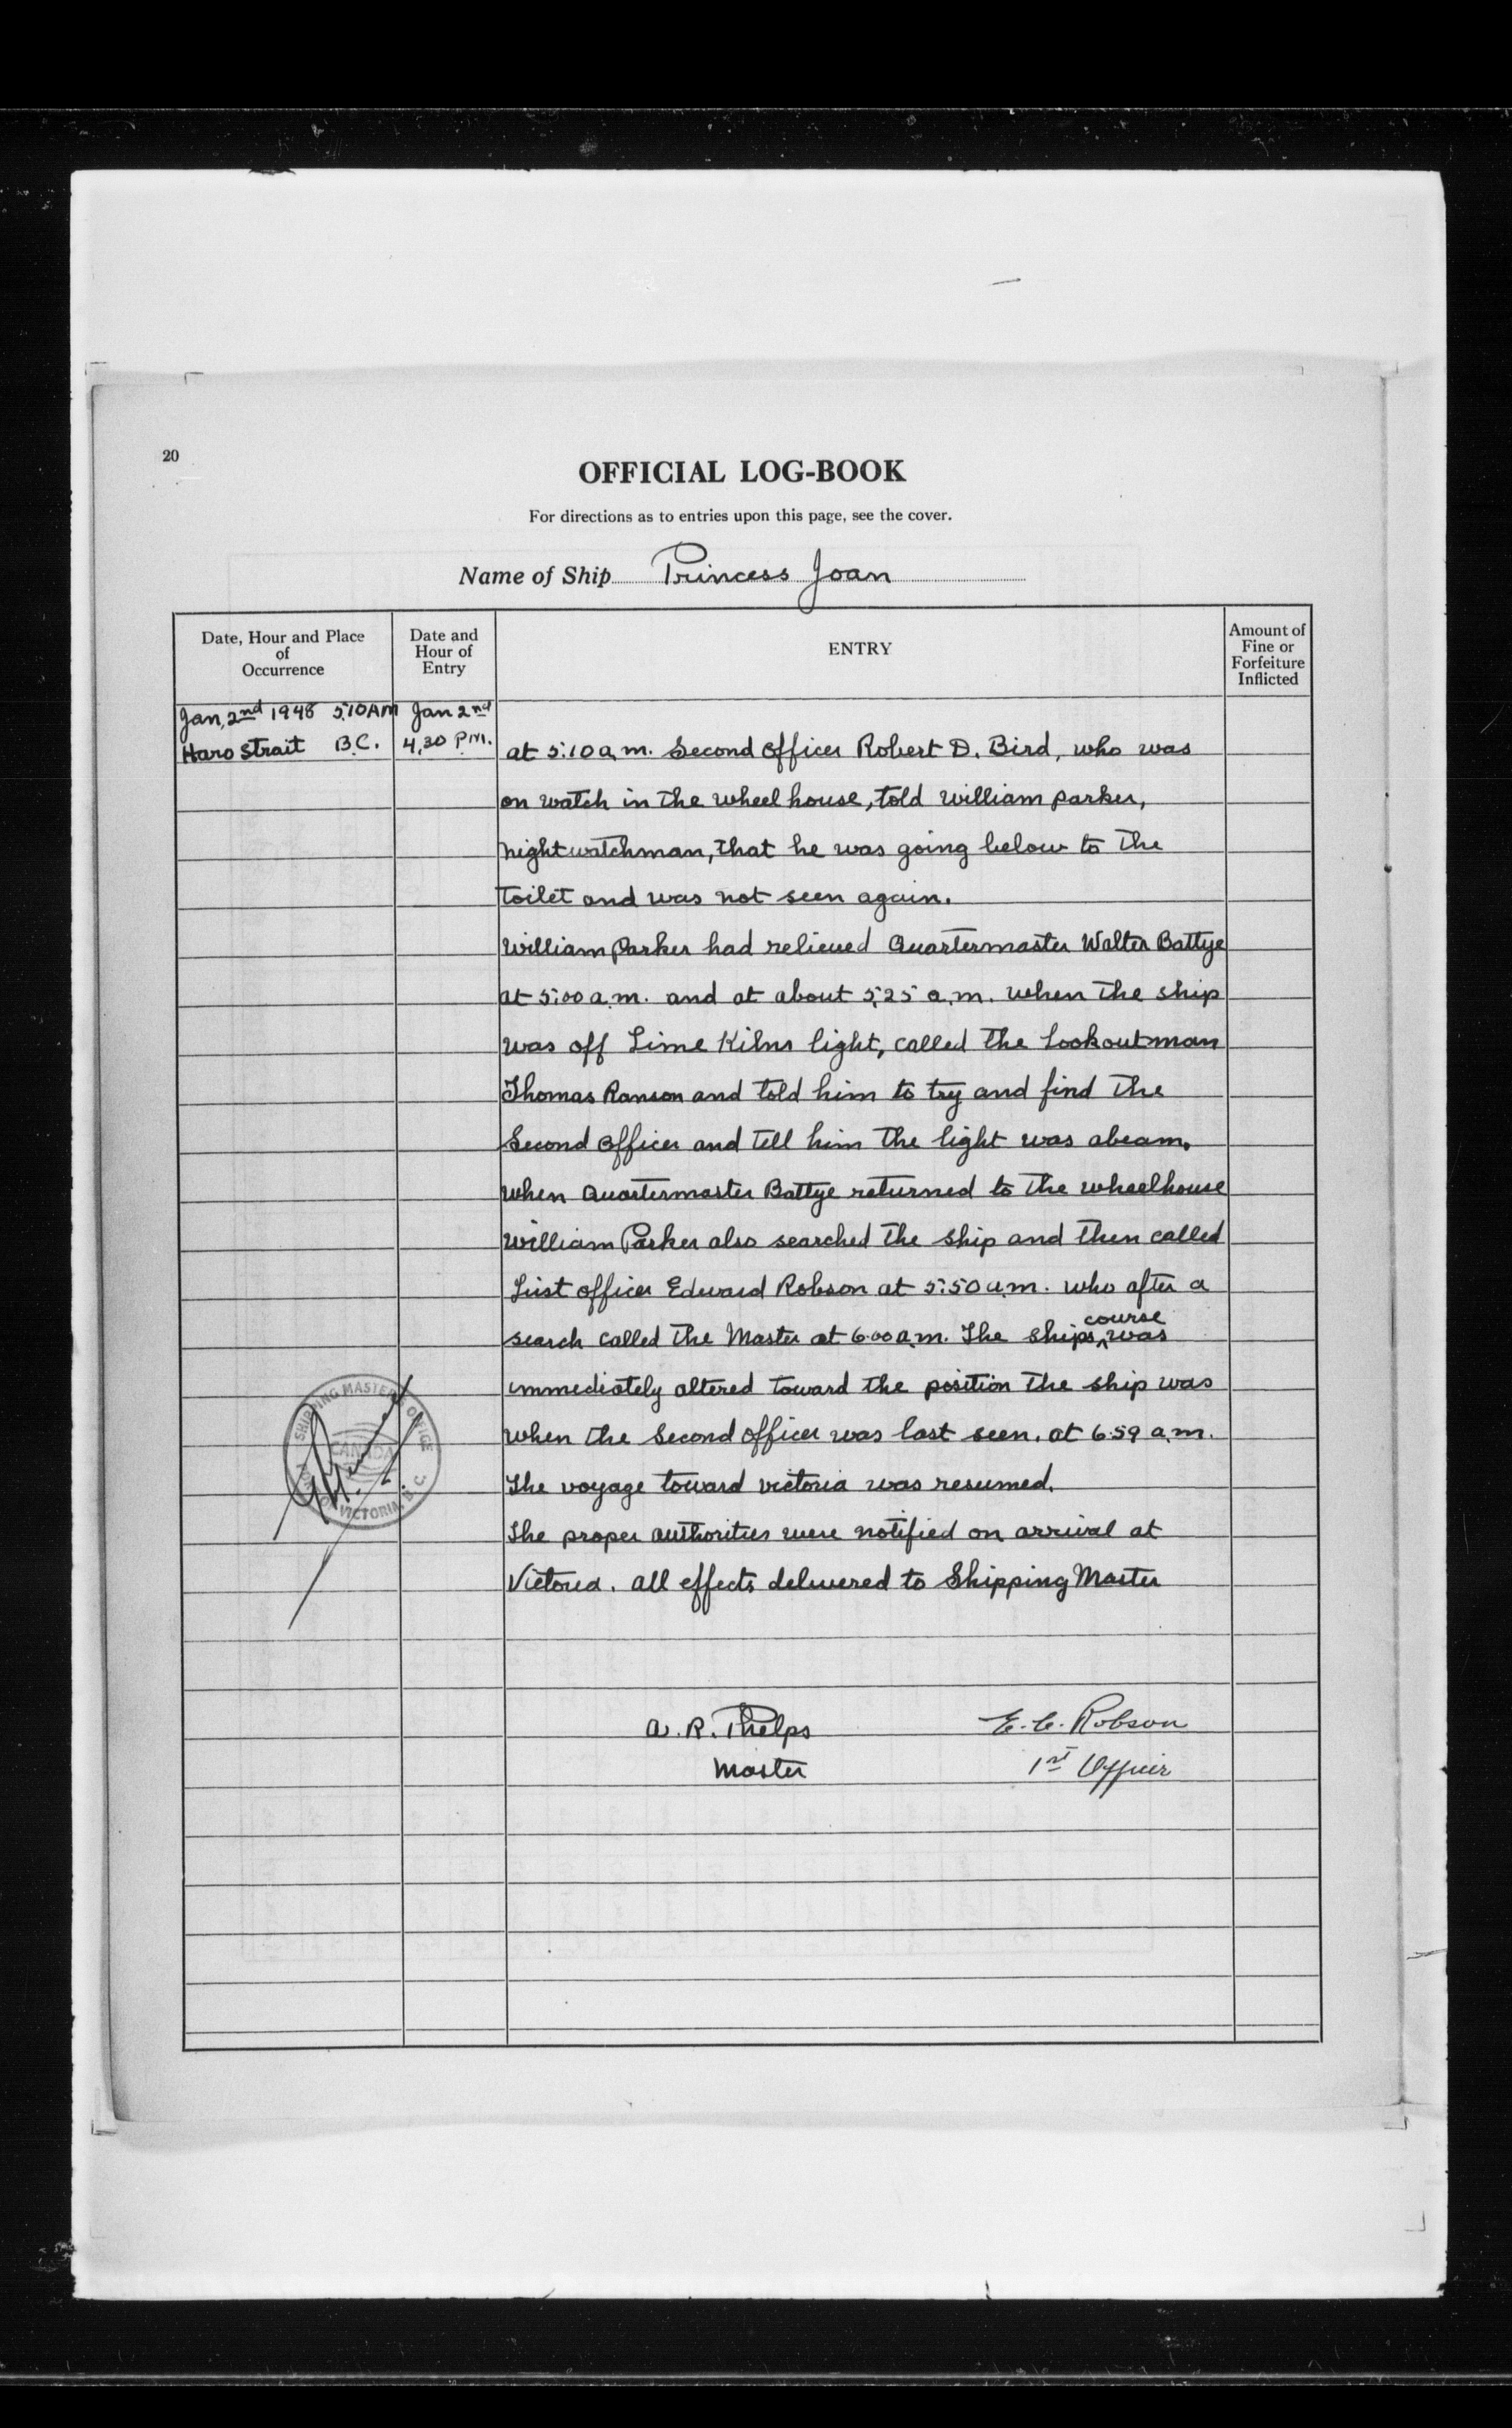 20
OFFICIAL LOG-BOOK
For directions as to entries upon this page, see the cover.
Name of Ship Princess Joan
Date, Hour and Place of Occurrence
Date and Hour of Entry
ENTRY
Amount of Fine or Forfeiture Inflicted
Jan, 2nd 1948 5.10 AM Jan 2nd
Haro Strait B.C. 4.30 P.M. at 5.10 a.m. Second Officer Robert D. Bird, who was
on watch in the wheel house, told William Parker,
nightwatchman, that he was going below to the
toilet and was not seen again.
William Parker had relieved Quartermaster Walter Battye
at 5.00 a.m. and at about 5.25 a.m. when the ship
was off Lime Kilns light, called the lookoutman
Thomas Ranson and told him to try and find the
Second Officer and tell him the light was abeam.
when Quartermaster Battye returned to the wheelhouse
William Parker also searched the ship and then called
First officer Edward Robson at 5.50 a.m. who after a
search called the Master at 6.00 a.m. The ships course was
immediately altered toward the position the ship was
when the Second Officer was last seen. at 6.59 a.m.
The voyage toward victoria was resumed.
The proper authorities were notified on arrival at
Victoria. all effects delivered to Shipping Master
SHIPPING MASTER'S OFFICE
CANADA
PORT OF VICTORIA, B.C.
A. R. Phelps E. C. Robson
Master 1st Officer